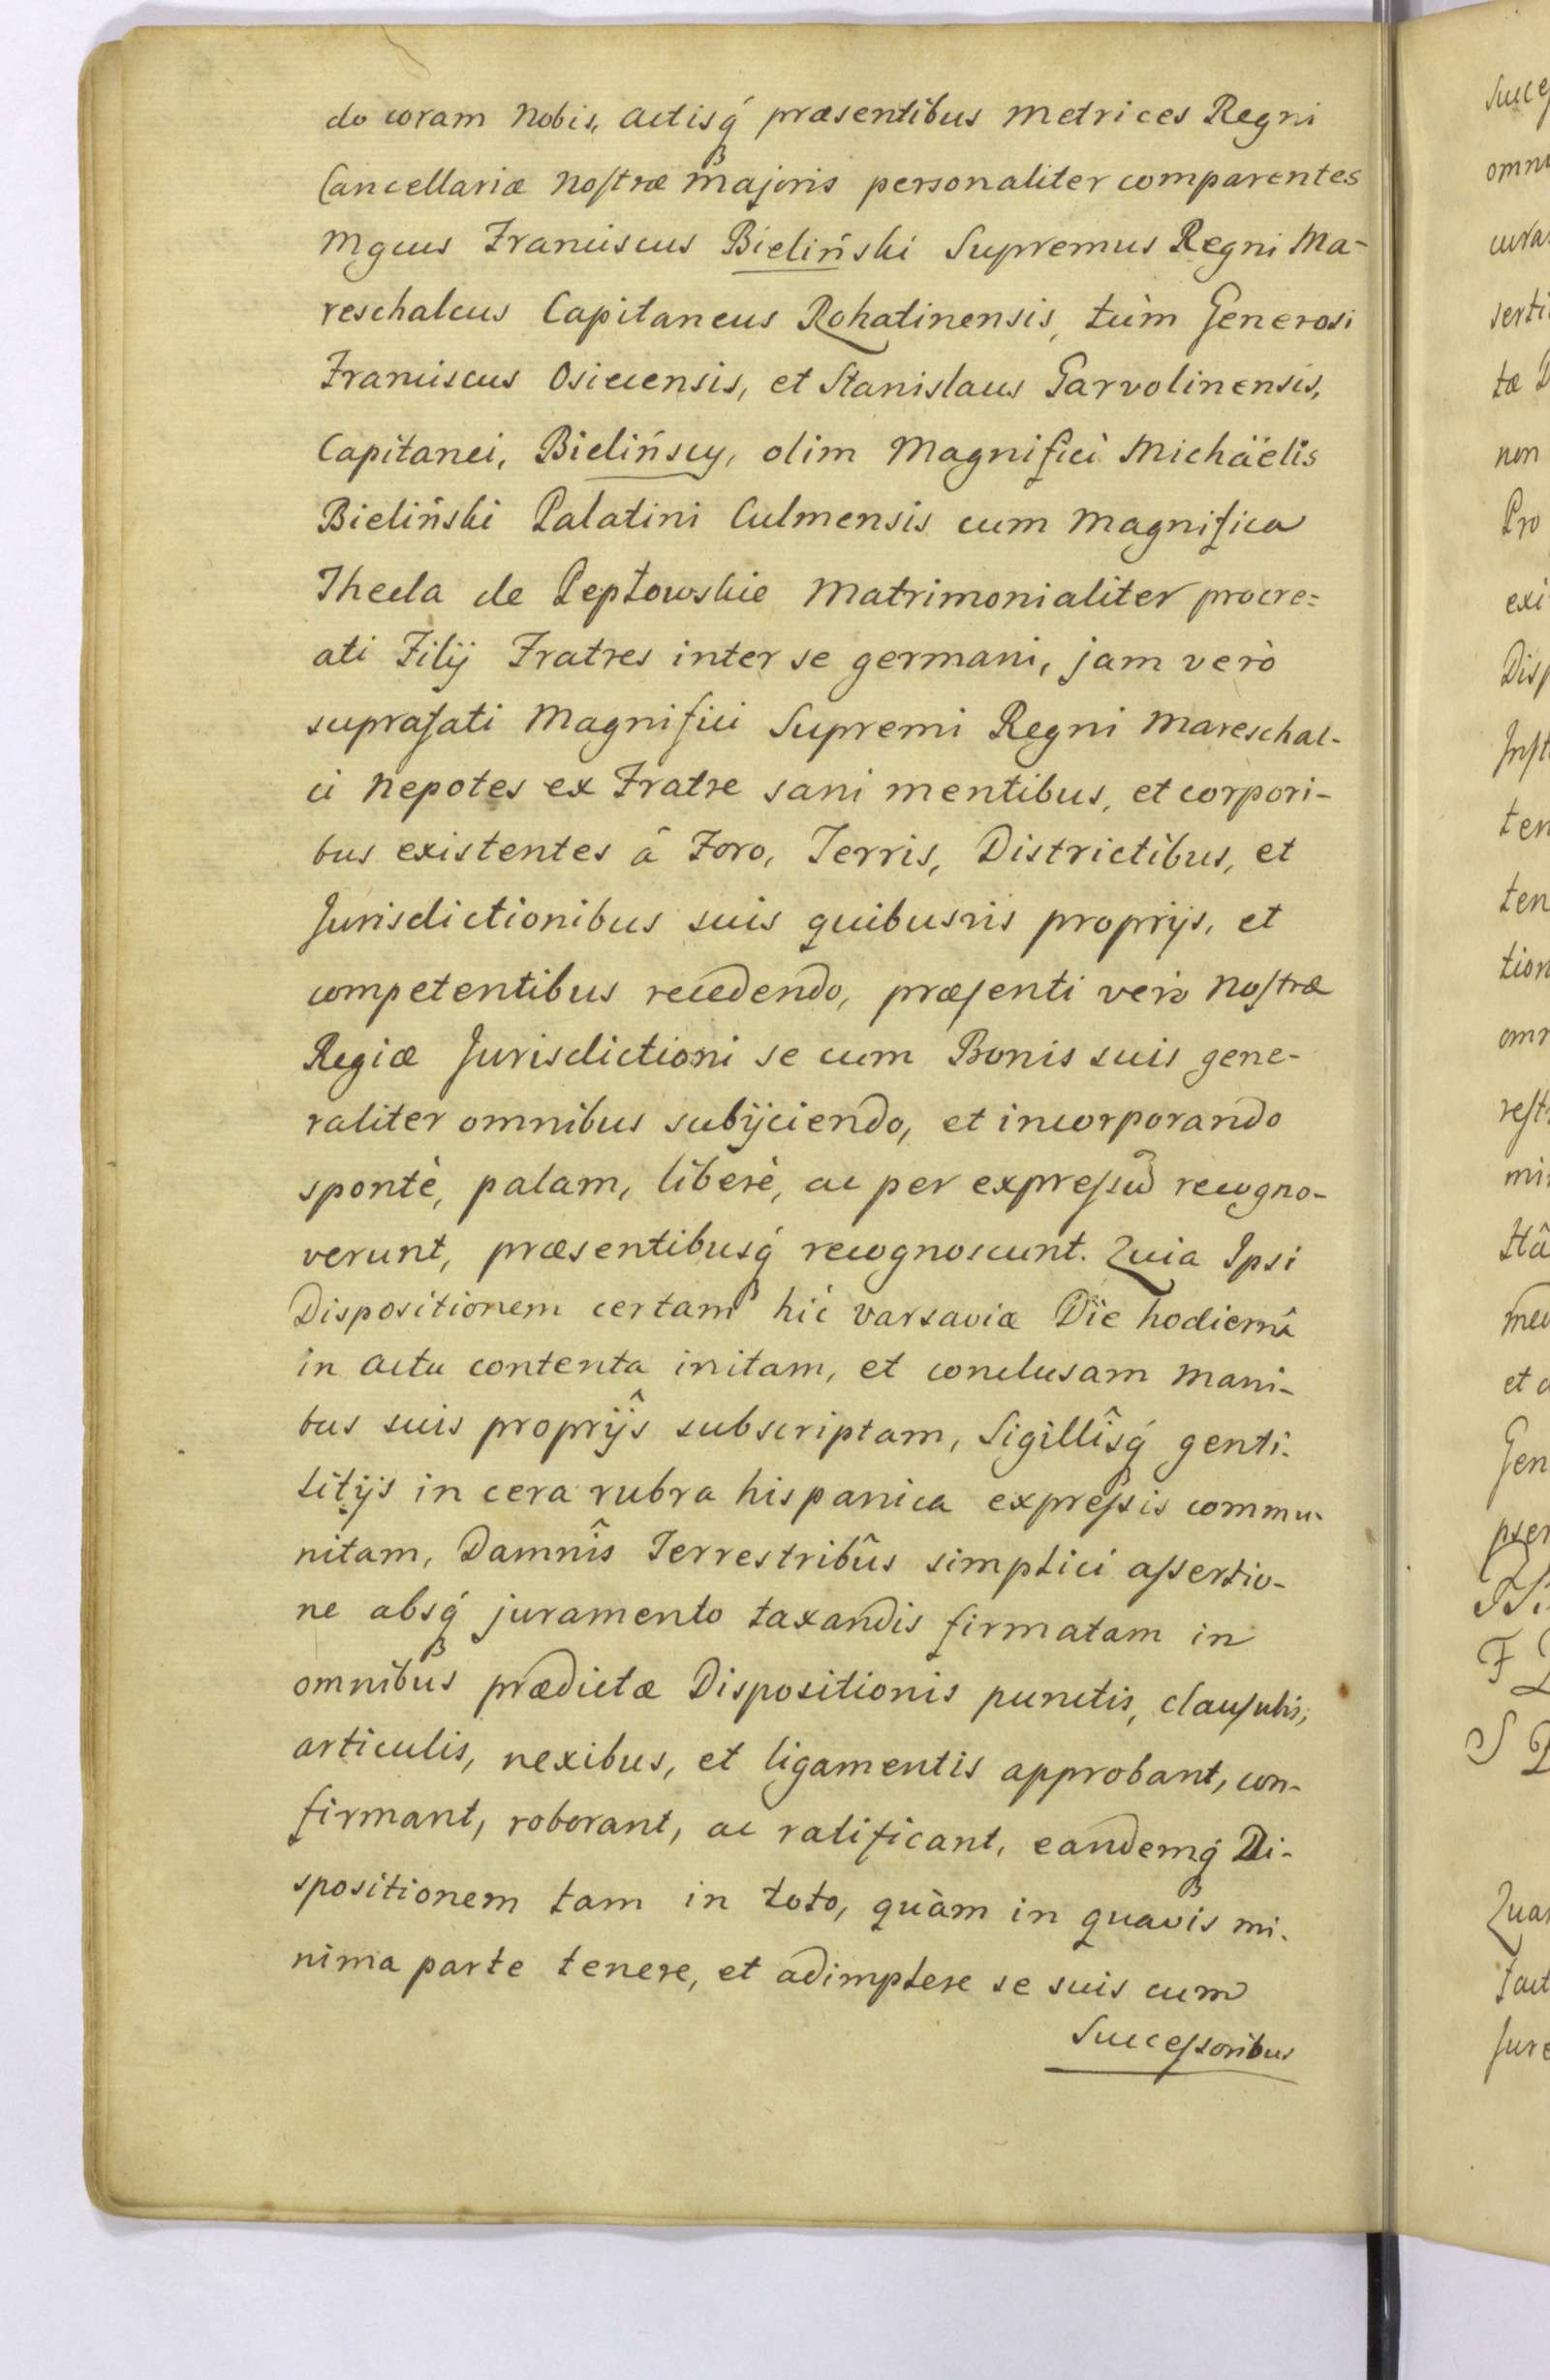 do coram Nobis, Actisq́ præsentibus Metrices Regni
Cancellariæ Noſtræ Majoris personaliter comparentes
Mgcus Franciscus Bieliński Supremus Regni Ma-
reschalcus Capitaneus Rohatinensis, tùm Generosi
Franciscus Osiecensis, et Stanislaus Garvolinensis,
Capitanei, Bielińscy, olim Magnifici Michäelis
Bieliński Palatini Culmensis cum Magnifica
Thecla de Pepłowskie Matrimonialiter procre=
ati Filij Fratres inter se germani, jam verò
suprafati Magnifici Supremi Regni Mareschal-
ci Nepotes ex Fratre sani mentibus, et corpori-
bus existentes â Foro, Terris, Districtibus, et
Jurisdictionibus suis quibusvis proprijs, et
competentibus recedendo, præſenti verò Noſtræ
Regiæ Jurisdictioni se cum Bonis suis gene-
raliter omnibus subijciendo, et incorporando
spontè, palam, liberè, ac per expreſsũ recogno-
verunt, præsentibusq́ recognoscunt. Quia Ipsi
Dispositionem certam hìc Varsaviæ Die hodiernâ
in Actu contenta initam, et conclusam Mani-
bus suis proprijs subscriptam, Sigillîsq́ genti-
litijs in cera rubra hispanica expreſsis commu-
nitam, Damnîs Terrestribûs simplici aſsertio-
ne absq́ juramento taxandis firmatam in
omnibus prædictæ Dispositionis punctis, clauſulis,
articulis, nexibus, et ligamentis approbant, con-
firmant, roborant, ac ratificant, eandemq́ Di-
spositionem tam in toto, quàm in quavis mi-
nima parte tenere, et adimplere se suis cum
Succeſsoribus
Succeſ
omni
cura
serti
tæ D
non
Pro
exi
Disp
Inſt
ten
ten
tion
omn
reſt
min
Itâ
med
et c
Gen
F
S
Quan
Fact
Jure